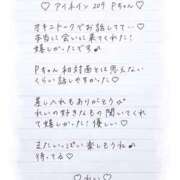 ♡ アイネイン 209 Pちゃん ♡
オキニトークでお話してて…♡
本当に会いに来てくれた!
嬉しかったです♪
Pちゃん 初対面とは思えない
くらい話しやすかた
差し入れもありがとう♡
れいの好きなもの聞いてくれ
て嬉しかった! 優しい♡
またいっぱい楽しもうね
待ってる♡
♡ れい ♡